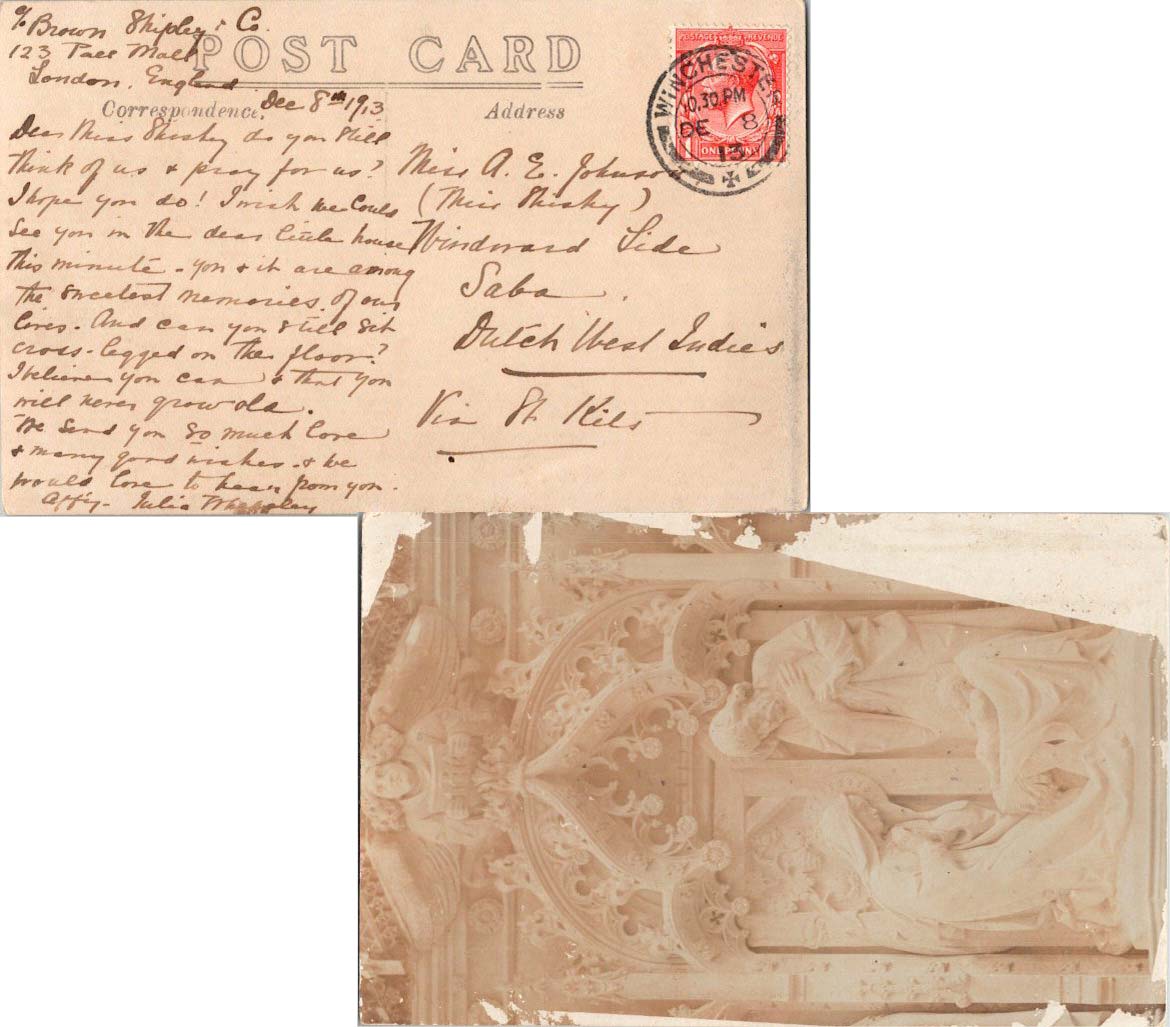 c/o Brown Shipley & Co.
123 Pall Mall
London, England
POST CARD
Correspondence.
Dec 8th 1913
Address
Dear Miss Shisky do you still
think of us & pray for us?
I hope you do! I wish we could
see you in the dear little house
this minute - you & it are among
the sweetest memories of our
lives. And can you still sit
cross-legged on the floor?
I believe you can & that you
will never grow old.
We send you so much love
& many good wishes & we
would love to hear from you.
Aff'y - Julia
Miss A. E. Johnson
(Miss Shisky)
Windward Side
Saba.
Dutch West Indies
Via St Kits
POSTAGE REVENUE
ONE PENNY
WINCHESTER
10.30 PM
DE 8
13